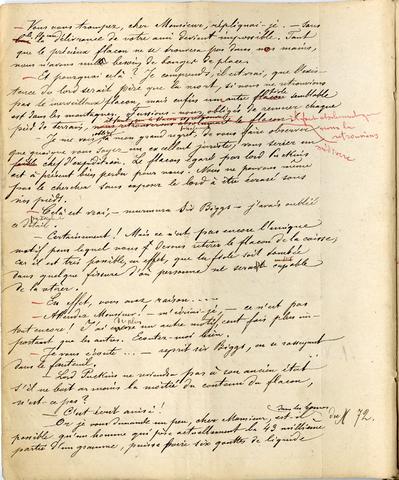 — Vous vous trompez, cher Monsieur, répliquai-je. — Sans
délivrance de votre ami devient impossible. Tant
que le précieux flacon ne se trouvera pas dans nos mains,
nous n'avons nul besoin de changer de place.
— Et pourquoi cela ? Je comprends, il est vrai, que l'exis-
tence du lord serait pire que la mort, si nous ne retrouvions
pas le merveilleux flacon, mais enfin une autre fiole semblable
est dans les montagnes. Y serions-nous obligés de remuer chaque
pied de terrain, il faut absolument que
nous la
retrouvions
le flacon
Je me vois à grand regret de vous faire observer
que quoique vous soyez un excellent juriste, vous seriez un
chef d'expédition. Le flacon égaré par lord Puckins
médiocre
est à présent bien perdu pour nous. Nous ne pouvons même
pas le chercher sans exposer le lord à être écrasé sous
nos pieds.
— Cela est vrai, — murmura Sir Biggs, — j'avais oublié
ce détail.
— Certainement ! Mais ce n'est pas encore l'unique
motif pour lequel nous devons retirer le flacon de la caisse,
car il est très possible, en effet, que la fiole soit tombée
dans quelque fissure d'où personne ne serait capable
de la retirer.
— En effet, vous avez raison . . . .
— Attendez Monsieur, — m'écriai-je, — ce n'est pas
tout encore ! J'ai un autre motif, cent fois plus im-
portant que les autres. Écoutez-moi bien.
— Je vous écoute . . . — reprit sir Biggs, en se rassayant
dans le fauteuil.
— Lord Puckins ne reviendra pas à son ancien état
s'il ne boit au moins la moitié du contenu du flacon,
n'est-ce pas ?
— C'est écrit ainsi !
— Or je vous demande un peu, cher Monsieur, est-il
possible qu'un homme qui pèse actuellement la 43 millième
partie d'un gramme, puisse boire six gouttes de liquide
du N 72.